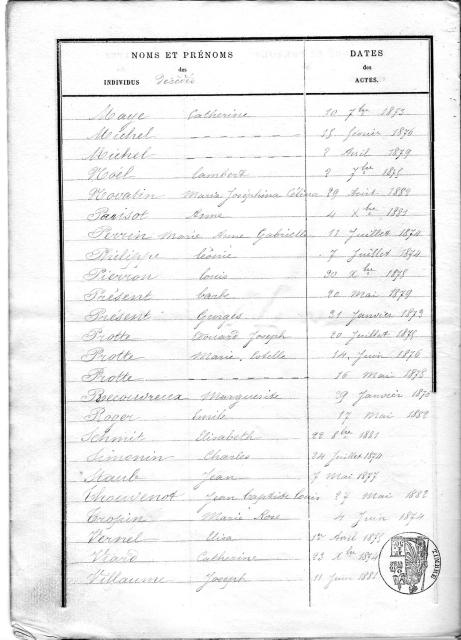 NOMS ET PRÉNOMS DATES
des des
INDIVIDUS Décédés ACTES.
Maye Catherine 10 7bre 1873
Michel - - - - - - 15 février 1876
Michel - - - - - - 2 Avril 1879
Noël Lambert 2 7bre 1875
Novalin Marie Joséphine Célina 29 Avril 1882
Parisot 4 Xbre 1881
Perrin Marie Anne Gabrielle 11 Juillet 1874
Philippe Léonie 7 Juillet 1874
Pierron Louis 20 Xbre 1878
Présent Barbe 20 Mai 1879
Présent Georges 21 Janvier 1873
Protte Edouard Joseph 20 Juillet 1875
Protte Marie 14 Juin 1876
Protte - - - - - - 16 Mai 1878
Marguerite 29 Janvier
Roger Emile 17 Mai 1882
Schmit Elisabeth 22 8bre 1881
Simonin Charles 24 Juillet 1874
Staub Jean 7 Mai 1877
Thouvenot Jean Baptiste Louis 27 Mai 1882
Marie Rose 4 Juin 1874
Vernel Elisa Avril
Viard Catherine 23 Xbre 1874
Villaume Joseph 11 Juin
TIMBRE